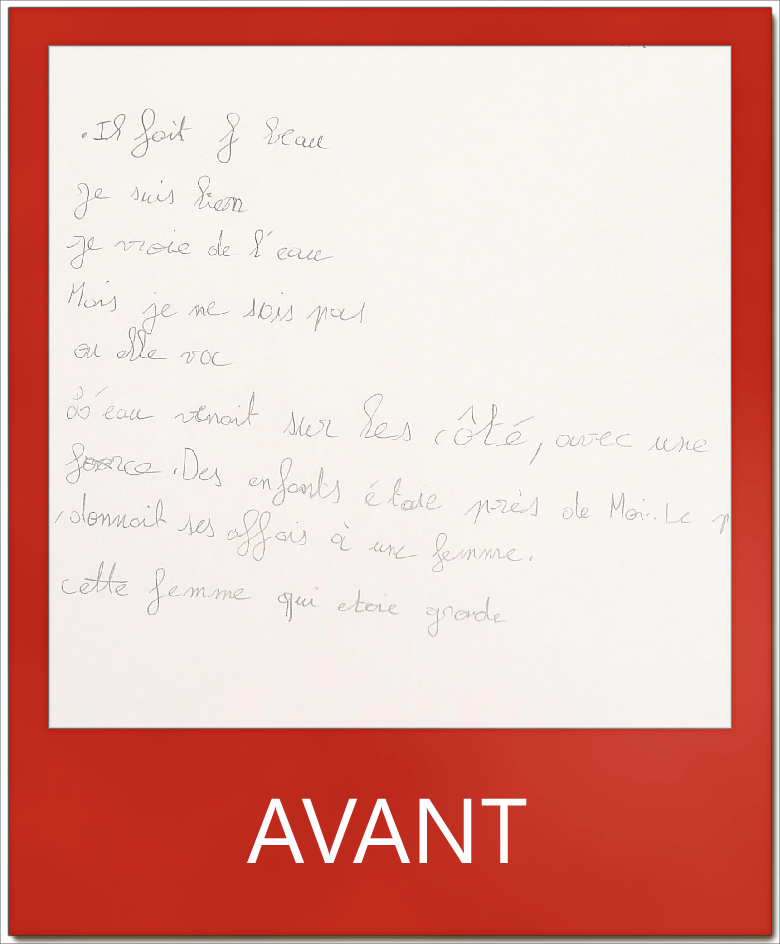 . Il fait f beau
je suis bien
je vroie de l'eau
Mais je ne sais pas
ou elle
L'eau venait sur les côté, avec une
force. Des enfants étaie près de Moi. Le
donnait ses affais à une femme.
cette femme qui etaie grande
AVANT